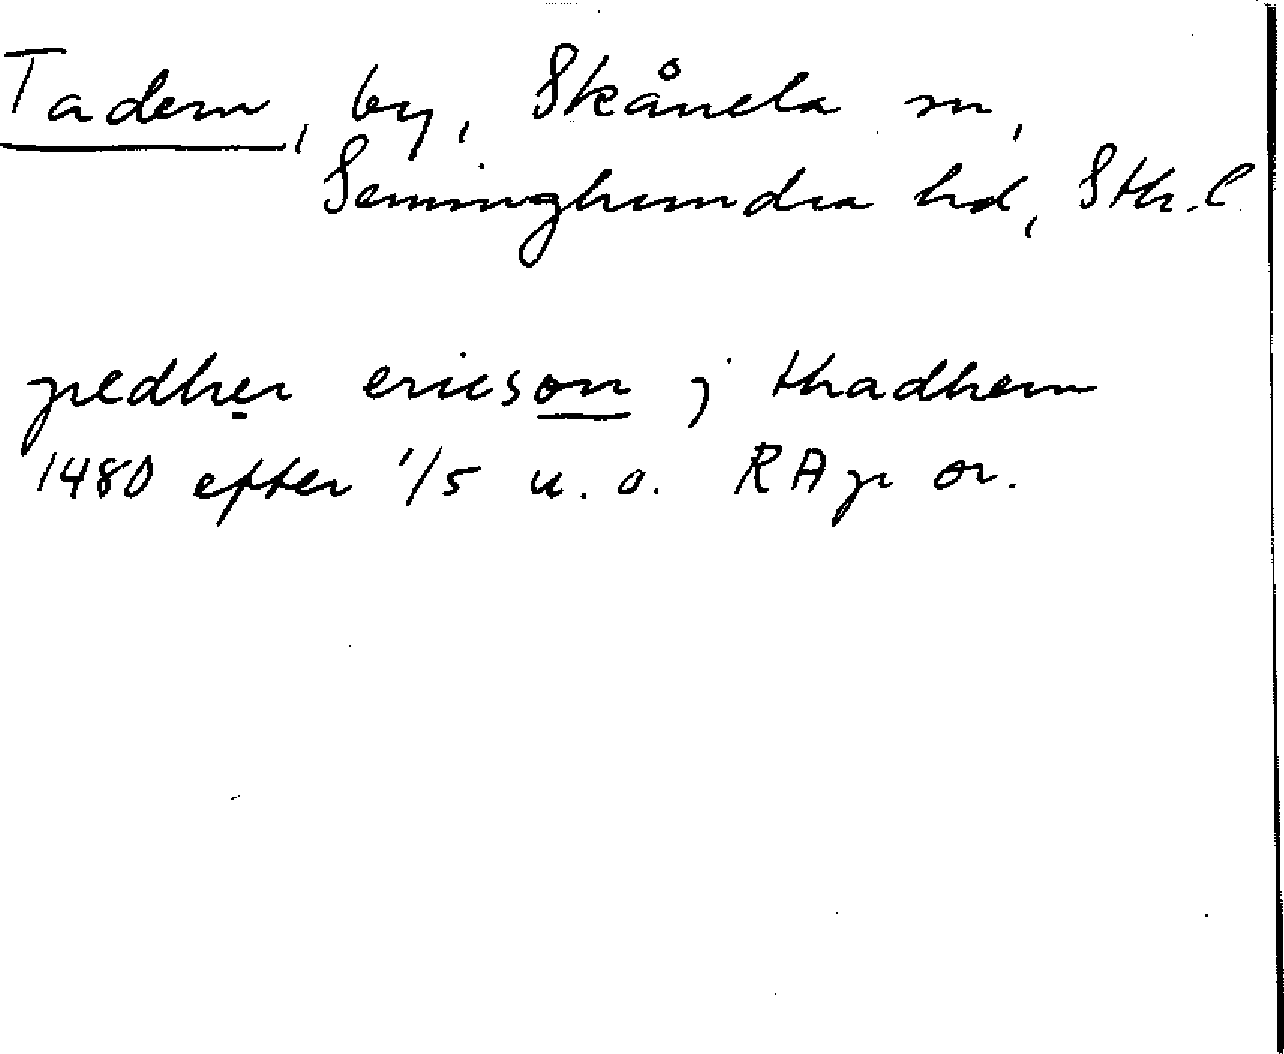 Tadem, by, Skånela sn,
Seminghundra hd, Sth. l.
pedher ericson j thadhem
1480 efter 1/5 u. o. RAp or.